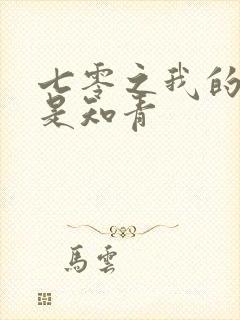 七零之我的
是知青
馬雲